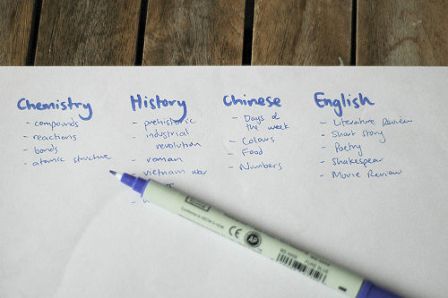 Chemistry
- compounds
- reactions
- bonds
- atomic structure
History
- prehistoric
- industrial
revolution
- roman
- vietnam war
Chinese
- Days of
the week
- Colours
- Food
- Numbers
English
- Literature Review
- Short story
- Poetry
- Shakespear
- Movie Review